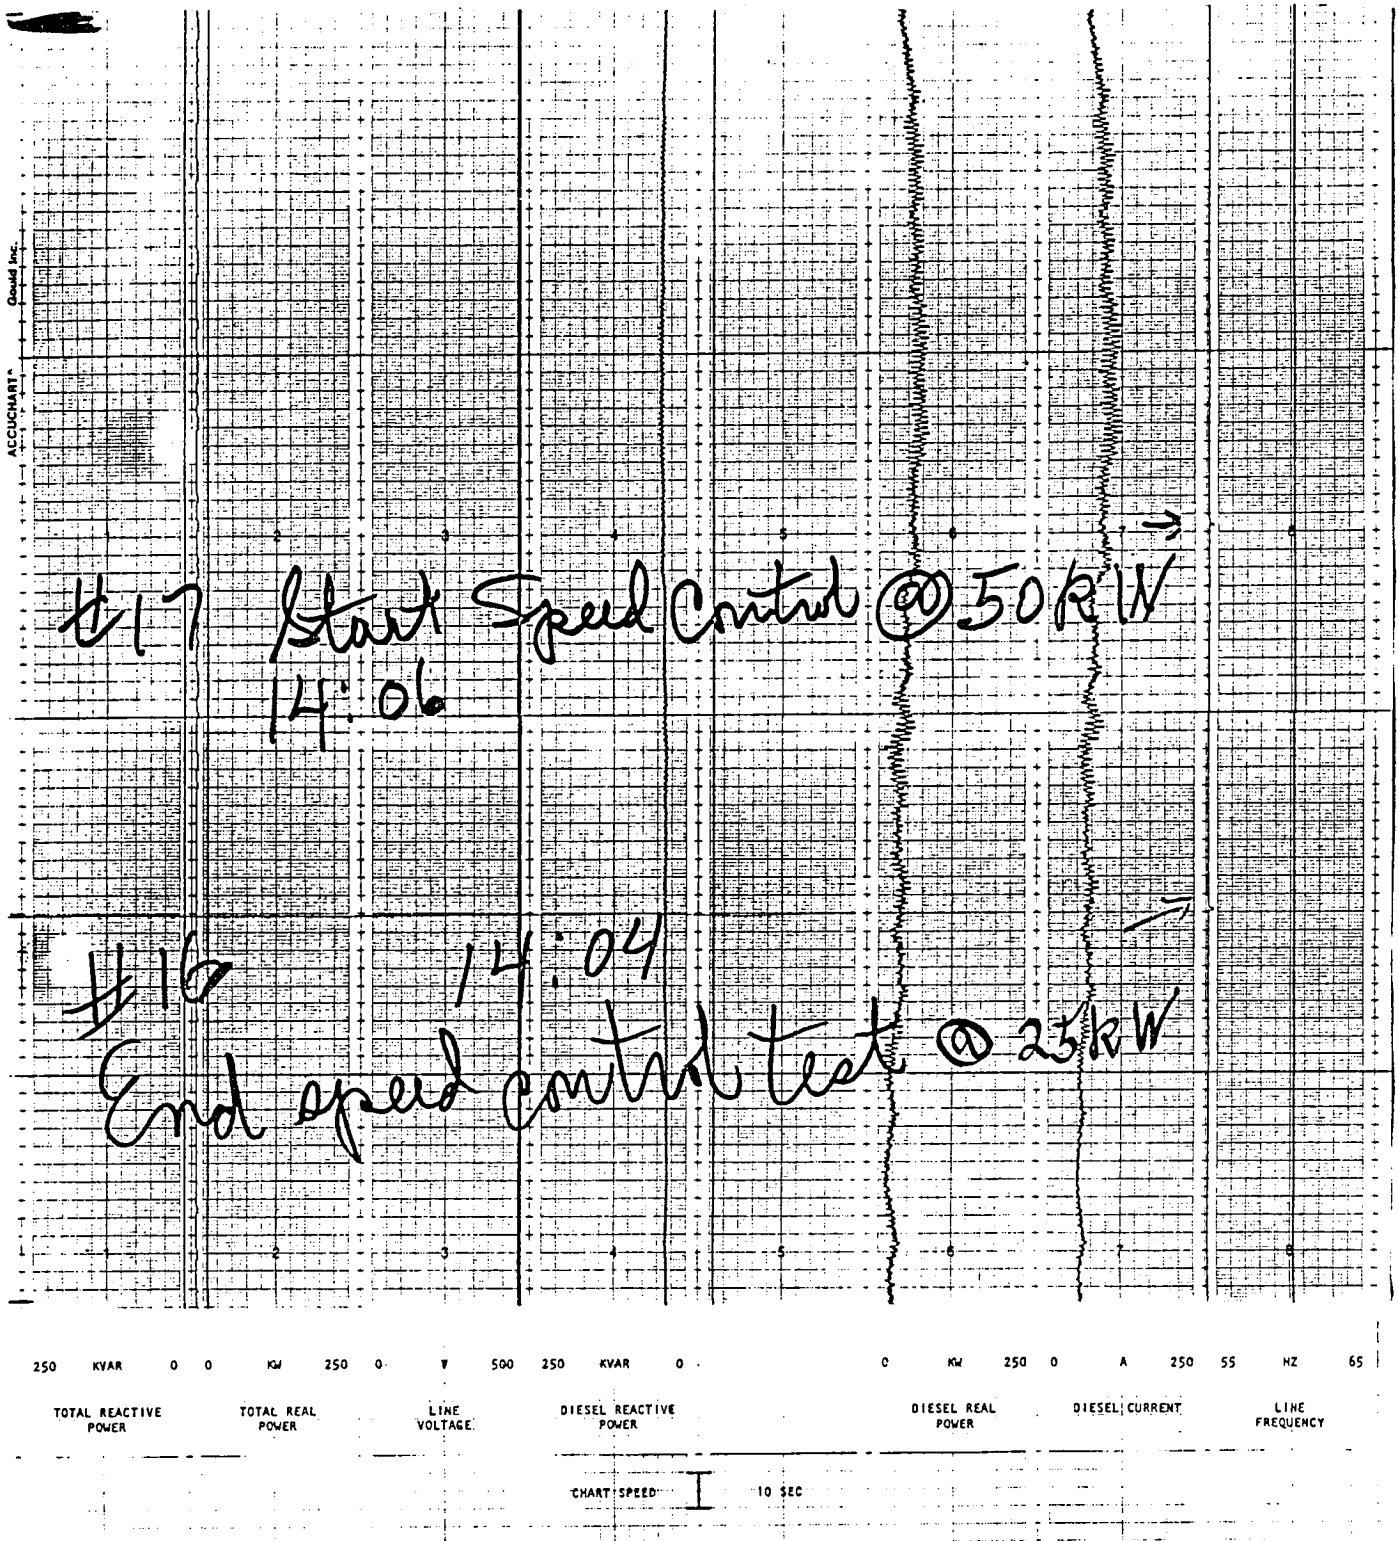 Gould Inc.
ACCUCHART
2 3 4 5 6 7 8
#17 Start Speed Control @ 50kW
14:06
#16 14:04
End speed control test @ 25kW
1 2 3 4 5 6 7 8
250 KVAR 0 0 KW 250 0 V 500 250 KVAR 0 0 KW 250 0 A 250 55 HZ 65
TOTAL REACTIVE POWER
TOTAL REAL POWER
LINE VOLTAGE
DIESEL REACTIVE POWER
DIESEL REAL POWER
DIESEL CURRENT
LINE FREQUENCY
CHART SPEED 10 SEC